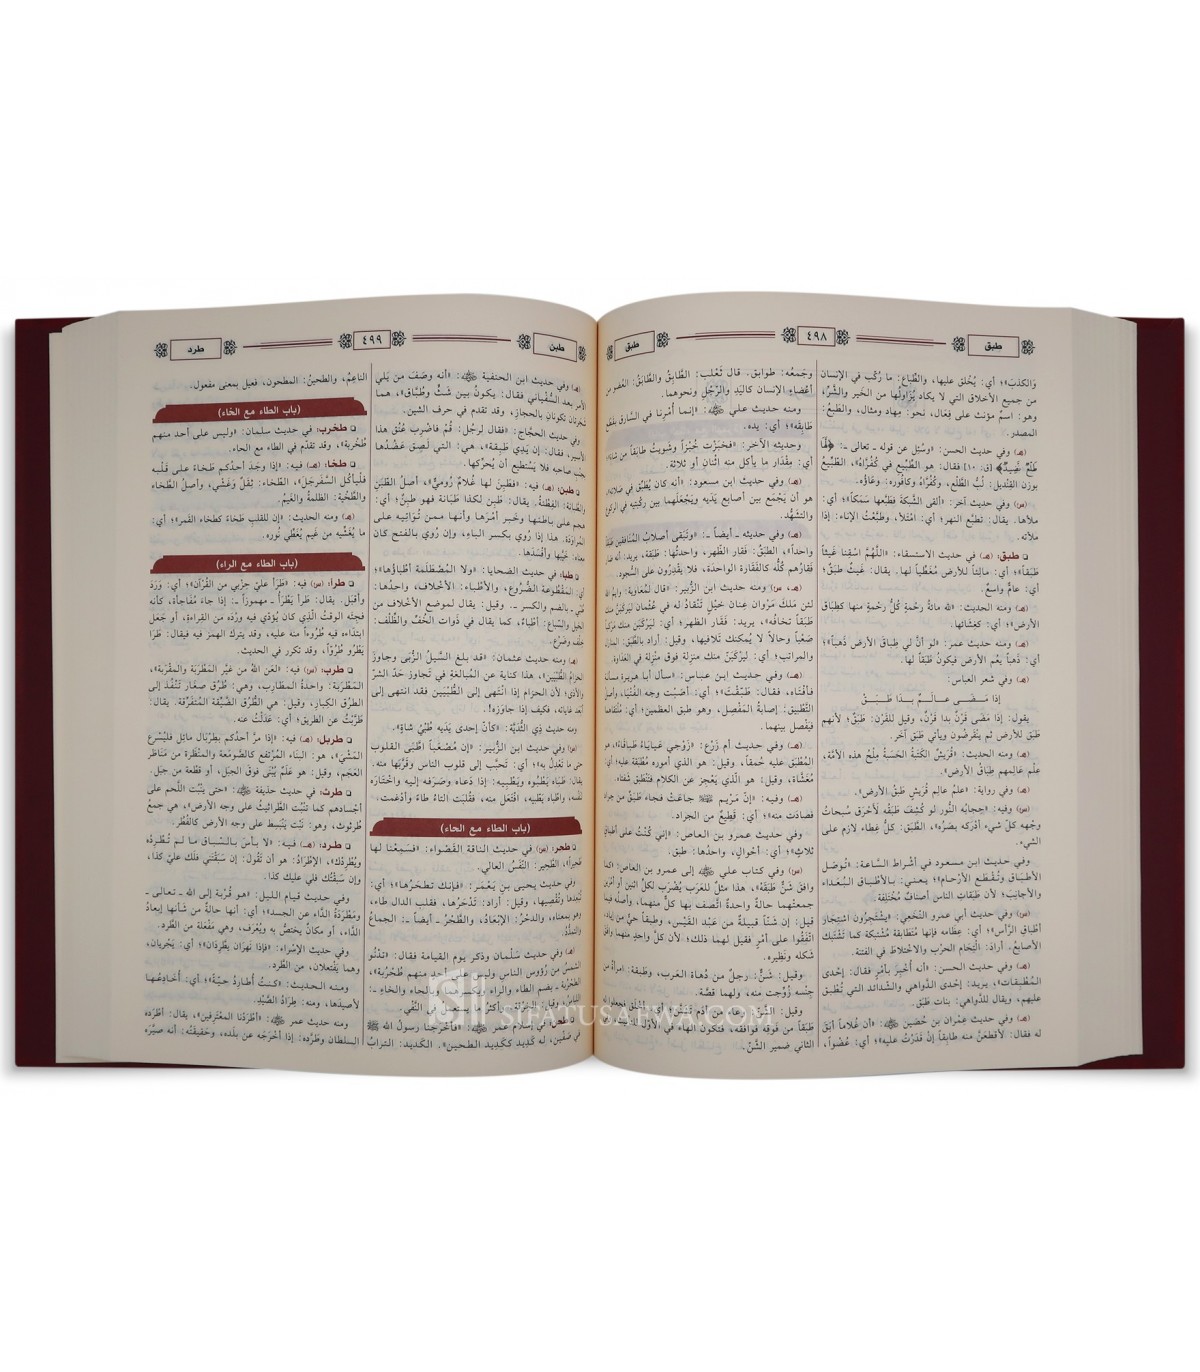 طبق
٤٩٨
طبق
والكذبَ»؛ أي: يُخْلق عليها، والطِّباع: ما رُكّب في الإنسان
من جميع الأخلاق التي لا يكاد يُزَاوِلُها من الخير والشَّرِّ،
وهو: اسمٌ مؤنث على فِعَال، نحو: مِهاد ومثال، والطَّبعُ:
المصدر.
(هـ) وفي حديث الحسن: «وسُئل عن قوله ـ تعالى ـ: ﴿لَهَا
طَلْعٌ نَضِيدٌ﴾ [ق: ١٠] فقال: هو الطِّبِّيع في كُفُرَّاهُ»، الطِّبِّيعُ
بوزن القِنْديل: لُبُّ الطَّلْع، وكُفُرَّاهُ وكافُوره: وِعَاؤُه.
(س) وفي حديث آخر: «ألقى الشَّبكةَ فطَبَّعها سَمَكاً»؛ أي:
ملأها. يقال: تَطَبَّع النهر؛ أي: امْتَلأ، وطَبَّعْتُ الإناء: إذا
ملأته.
❑ طبق: (هـ) في حديث الاستسقاء: «اللَّهُمَّ اسْقِنا غَيْثاً
طَبَقاً»؛ أي: مالئاً للأرض مُغَطِّياً لها. يقال: غَيثٌ طَبَقٌ؛
أي: عامٌّ واسعٌ.
(هـ) ومنه الحديث: «لله مائةُ رحمةٍ كُلُّ رَحْمةٍ منها كطِبَاقِ
الأرض»؛ أي: كغِشَائها.
(هـ) ومنه حديث عمر: «لو أنَّ لي طِباقَ الأرض ذَهَباً»؛
أي: ذَهَباً يَعُمُّ الأرض فيكونُ طَبَقاً لها.
(هـ) وفي شعر العباس:
إذا مَـضَـى عَـالَـمٌ بَـدَا طَـبَـقُ
يقول: إذا مضَى قَرْنٌ بدا قَرْنٌ، وقيل للقَرْن: طَبَقٌ؛ لأنهم
طَبَقٌ للأرض ثم يَنْقرضُون ويأتي طبَق آخر.
(هـ) ومنه الحديث: «قُرَيْشٌ الكَتَبَةُ الحَسَبَةُ مِلْحُ هذه الأمَّة،
عِلْم عالِمهم طِباقُ الأرض».
(هـ) وفي رواية: «علم عالِم قُرَيش طَبَقُ الأرض».
(س) وفيه: «حِجابُه النُّور لو كُشِف طَبَقُه لأحْرَق سُبحاتُ
وجْهِه كلَّ شيء أدْرَكه بصَرُه»، الطَّبَقُ: كلُّ غِطاء لازمٍ على
الشيء.
وفي حديث ابن مسعود في أشْراط الساعة: «تُوصَل
الأطباقُ وتُقْطَع الأرْحام»؛ يعني: بالأطْباقِ البُعَداءَ
والأجانِبَ، لأن طبَقاتِ الناس أصنافٌ مُخْتَلِفة.
(س) وفي حديث أبي عمرو النَّخَعِي: «يشْتَجِرُون اشْتِجَارَ
أطْباقِ الرَّأس»؛ أي: عِظَامه فإنها مُتَطَابِقة مُشْتَبِكة كما تَشْتَبِك
الأصابعُ. أراد: الْتِحَام الحرْب والاخْتلاطَ في الفتنة.
(هـ) وفي حديث الحسن: «أنه أُخْبِرَ بأمْرٍ فقال: إحْدى
المُطْبِقات»، يريد: إحْدَى الدَّواهي والشَّدائد التي تُطْبِق
عليهم، ويقال للدَّواهي: بنات طَبَق.
(هـ) وفي حديث عِمْران بن حُصَين: «أن غُلاماً أبَق
له فقال: لأقْطَعَنَّ منه طابِقاً إنْ قَدَرْتُ عليه»؛ أي: عُضْواً،
وجَمعُه: طوابق. قال ثَعْلب: الطَّابِقُ والطَّابَقُ: العُضو من
أعْضاء الإنسان كاليَدِ والرِّجْل ونحوهما.
ومنه حديث علي: «إنما أُمِرْنا في السَّارق بقَطْع
طابِقِه»؛ أي: يدِه.
وحديثه الآخر: «فخَبَزْت خُبْزاً وشَويتُ طابَقاً من شاة»،
أي: مِقْدَار ما يأكل منه اثْنان أو ثلاثة.
(هـ) وفي حديث ابن مسعود: «أنه كان يُطَبِّق في صَلاته»،
هو أن يَجْمَع بين أصابع يَدَيه ويَجْعَلهما بين رُكبتيه في الركوع
والتشهُّد.
(هـ) وفي حديثه ـ أيضاً ـ: «وتَبْقَى أصْلابُ المُنافقين طَبَقاً
واحداً»، الطَّبَقُ: فَقار الظَّهر، واحدتُها: طَبَقة، يريد: أنه صار
فَقارُهم كُلُّه كالفَقَارة الواحدة، فلا يقْدِرُون على السُّجود.
(هـ، س) ومنه حديث ابن الزُّبير: «قال لمُعاوية: وايمُ الله
لئن مَلَك مَرْوانُ عِنان خَيْلٍ تَنْقادُ له في عُثمان لَيَرْكَبَنَّ منك
طَبَقاً تخافُه»، يريد: فَقَار الظهر؛ أي: لَيَرْكَبَنَّ منك مَرْكباً
صَعْباً وحالاً لا يُمكنك تَلافيها، وقيل: أراد بالطَّبَق: المنازل
والمراتب؛ أي: ليَرْكَبَنَّ منك منزلة فوق منْزِلة في العَداوة.
(هـ) وفي حديث ابن عباس: «سأل أبا هريرة مسألة
فأفْتَاه، فقال: طَبَّقْتَ»؛ أي: أصَبْتَ وجه الفُتْيا، وأصلُ
التَّطْبيق: إصابةُ المَفْصِل، وهو طبق العظمين؛ أي: مُلْتقاهما
فيفصل بينهما.
(هـ) وفي حديث أم زَرْع: «زَوْجي عَيَاياءُ طَبَاقَاءُ»، هو
المُطْبَق عليه حُمقاً، وقيل: هو الذي أموره مُطْبَقة عليه؛ أي:
مُغَشَّاة، وقيل: هو الذي يَعْجِز عن الكلام فتَنْطَبِق شفتاه.
(هـ) وفيه: «إنَّ مَرْيم جاعَت فجاء طَبَقٌ من جراد
فصادَت منه»؛ أي: قَطِيعٌ من الجراد.
وفي حديث عمرو بن العاص: «إنِّي كُنْتُ على أطباقٍ
ثلاثٍ»؛ أي: أحْوال، واحدُها: طبق.
(س) وفي كتاب علي إلى عمرو بن العاص: «كما
وافق شَنٌّ طَبَقَه»، هذا مثلٌ للعَرَب يُضْرَب لكلِّ اثنين أو أمْرَين
جمعتْهما حالةٌ واحدةٌ اتَّصفَ بها كلٌّ منهما، وأصلُه فيما
قيل: إن شَنّاً قبيلةٌ من عَبد القَيْس، وطَبقاً حيٌّ من إياد،
اتَّفَقُوا على أمْرٍ فقيل لهما ذلك؛ لأن كلَّ واحدٍ منهما وافَقَ
شكله ونَظِيره.
وقيل: شَنٌّ: رجلٌ من دُهاة العَرب، وطَبَقة: امرأةٌ من
جِنْسه زُوِّجت منه، ولهما قصَّة.
وقيل: الشَّنُّ: وعاء من أدَم تَشَنَّنَ؛ أي: أخْلَقَ فجعلوا له
طَبَقاً من فوقه فوافقه، فتكون الهاءُ في الأوَّل للتأنيث وفي
الثاني ضمير الشَّنِّ.
طبن
٤٩٩
طرد
(هـ) وفي حديث ابن الحنفية: «أنه وصَفَ من يَلي
الأمرَ بعد السُّفْياني فقال: يكونُ بين شَثٍّ وطُبَّاق»، هما
شجَرتان تكونان بالحجاز، وقد تقدم في حرف الشين.
وفي حديث الحجَّاج: «فقال لرجُل: قُمْ فاضْرِب عُنُق هذا
الأسير، فقال: إن يَدِي طَبِقة»، هي: التي لَصِق عَضُدُها
بجنْبِ صاحبه فلا يستطيع أن يُحرِّكها.
❑ طبن: (هـ) فيه: «فطَبِنَ لها غُلامٌ رُوميٌّ»، أصلُ الطَّبَن
والطَّبانة: الفِطْنةُ. يقال: طَبِن لكذا طَبَانة فهو طَبِنٌ؛ أي:
هَجم على باطنها وخَبر أمْرَها وأنها ممن تُواتيه على
المُراوَدَة. هذا إذا رُوي بكسر الباءِ، وإن رُوي بالفتح كان
معناه: خيَّبها وأفْسَدَها.
❑ طبا: في حديث الضحايا: «ولا المُصْطَلَمة أطْباؤُها»؛
أي: المقْطوعة الضُّرُوع، والأطْباءُ: الأخْلاف، واحدها:
طُبْيٌ ـ بالضم والكسر ـ. وقيل: يقال لموضع الأخْلاف من
الخَيل والسِّباع: أطْباءٌ، كما يقال في ذَوات الخُفِّ والظِّلْف:
خِلْف وضَرْع.
(هـ) ومنه حديث عثمان: «قد بلغ السَّيْلُ الزُّبَى وجاوزَ
الحِزامُ الطُّبْيَين»، هذا كناية عن المُبالَغة في تَجاوز حَدِّ الشرّ
والأذى؛ لأن الحزام إذا انْتَهى إلى الطُّبْيَين فقد انتهى إلى
أبعد غاياته، فكيف إذا جاوزَه!.
ومنه حديث ذي الثُّدَيَّة: «كأنَّ إحدى يَدَيه طُبْيُ شاةٍ».
(س) وفي حديث ابن الزُّبَير: «إن مُصْعَباً اطَّبَى القلوب
حتى ما تَعْدِل به»؛ أي: تَحَبَّب إلى قلوب الناس وقَرَّبَها منه.
يقال: طَبَاه يَطْبُوه ويَطْبِيه: إذا دَعاه وصَرَفه إليه واخْتَارَه
لنفسه، واطَّباه يَطَّبيه، افْتَعل منه، فقُلبَت التاءُ طاءً وأُدْغمت.
(باب الطاء مع الحاء)
❑ طحر: (س) في حديث الناقة القَصْواء: «فسَمِعْنا لها
طَحيراً»، الطَّحِير: النَّفَسُ العالي.
وفي حديث يحيى بن يَعْمَر: «فإنك تَطْحَرُها»؛ أي:
تُبْعِدها وتُقْصيها، وقيل: أراد: تَدْحَرُها، فقلب الدال طاء،
وهو بمعناه، والدحْرُ: الإبْعَادُ، والطَّحْرُ ـ أيضاً ـ: الجماعُ
والتمدُّد.
(هـ) وفي حديث سَلْمان وذكر يوم القيامة فقال: «تَدْنُو
الشمسُ من رُؤوس الناس وليس على أحدٍ منهم طُحْرُبة»،
الطُّحْرُبة ـ بضم الطاء والراء وبكسرهما وبالحاء والخاء ـ:
اللِّباسُ، وقيل: الخِرْقة، وأكثرُ ما يستعمل في النَّفْي.
❑ طحن: في إسلام عمر: «فأخْرَجَنا رسولُ الله ﷺ
في صَفَّين، له كَدِيد ككَدِيد الطحين». الكَدِيد: الترابُ
الناعِمُ، والطحينُ: المطحون، فعيل بمعنى مفعول.
(باب الطاء مع الخاء)
❑ طخرب: في حديث سلْمان: «وليس على أحد منهم
طُخْرُبة»، وقد تقدّم في الطاء مع الحاء.
❑ طخا: (هـ) فيه: «إذا وَجَد أحدُكم طَخَاءً على قَلْبه
فليأكُل السَّفَرجَل»، الطَّخَاءُ: ثِقْلٌ وغَشْيٌ، وأصلُ الطَّخَاء
والطَّخْية: الظلمةُ والغَيمُ.
(هـ) ومنه الحديث: «إن للقلبِ طَخَاءً كَطَخاء القَمر»؛ أي:
ما يُغَشِّيه من غَيم يُغَطِّي نُوره.
(باب الطاء مع الراء)
❑ طرأ: (س) فيه: «طَرَأ عليّ حِزْبي من القُرْآن»؛ أي: وَرَدَ
وأقبَل. يقال: طَرَأ يَطْرَأُ ـ مهموزاً ـ: إذا جاء مُفاجأة، كأنه
فجِئَه الوقتُ الَّذي كان يُؤدِّي فيه ورْدَه من القِراءةِ، أو جَعَل
ابتداءه فيه طُرُوءاً منه عليه، وقد يترك الهمز فيه فيقال: طَرَا
يَطْرُو طُرُوّاً، وقد تكرر في الحديث.
❑ طرب: (س) فيه: «لَعَن اللهُ من غَيَّر المَطْرَبَة والمَقْرَبة»،
المَطْرَبَة: واحدةُ المَطارب، وهي: طُرُق صِغار تَنْفُذ إلى
الطرُق الكِبارِ، وقيل: هي: الطُّرُق الضَّيِّقة المُتفَرِّقة. يقال:
طَرَّبْتُ عن الطريق؛ أي: عَدَلْتُ عنه.
❑ طربل: (هـ) فيه: «إذا مرَّ أحدُكم بطِرْبال مائل فليُسْرِع
المَشْي»، هو: البناء المُرْتفع كالصَّوْمعة والمَنْظَرة من مَناظر
العَجَم، وقيل: هو: عَلَمٌ يُبْنَى فوقَ الجَبَل، أو قِطْعة من جَبل.
❑ طرث: في حديث حذيفة: «حتى يَنْبُت اللَّحم على
أجْسادِهم كما تَنْبُت الطَّراثيثُ على وجه الأرض»، هي: جمعُ
طُرْثُوث، وهو: نَبْت يَنْبَسِط على وجه الأرض كالفُطْر.
❑ طـرد: (هـ) فـيـه: «لا بـأسَ بـالسِّبَـاق ما لـم تُـطْرِدْه
ويُطْرِدْك»، الإطْرَادُ: هو أن تَقُولَ: إن سَبَقْتَني فَلَك عليَّ كذا،
وإن سَبَقْتُك فلي عليك كذا.
وفي حديث قيام الليل: «هو قُرْبة إلى الله ـ تعالى ـ
ومَطْرَدَةُ الدَّاء عن الجسد»؛ أي: أنها حالةٌ من شَأنها إبعادُ
الدَّاء، أو مكانٌ يختصُّ به ويُعْرَف، وهي مَفْعَلة من الطَّرد.
وفي حديث الإسْراء: «فإذا نَهرَان يطَّرِدَان»؛ أي: يَجْريان،
وهما يَفْتَعلان، من الطَّرد.
ومنه الحديث: «كنتُ أُطَارِدُ حيَّةً»؛ أي: أُخادِعُها
لأصِيدَها، ومنه: طِرَادُ الصَّيْد.
ومنه حديث عمر: «أطْرَدْنَا المُعْتَرِفين»، يقال: أطْرَدَه
السلطان وطَرَدَه: إذا أخْرَجَه عن بلَده، وحَقِيقَتُه: أنه صيَّره
SIFATUSAFWA.COM